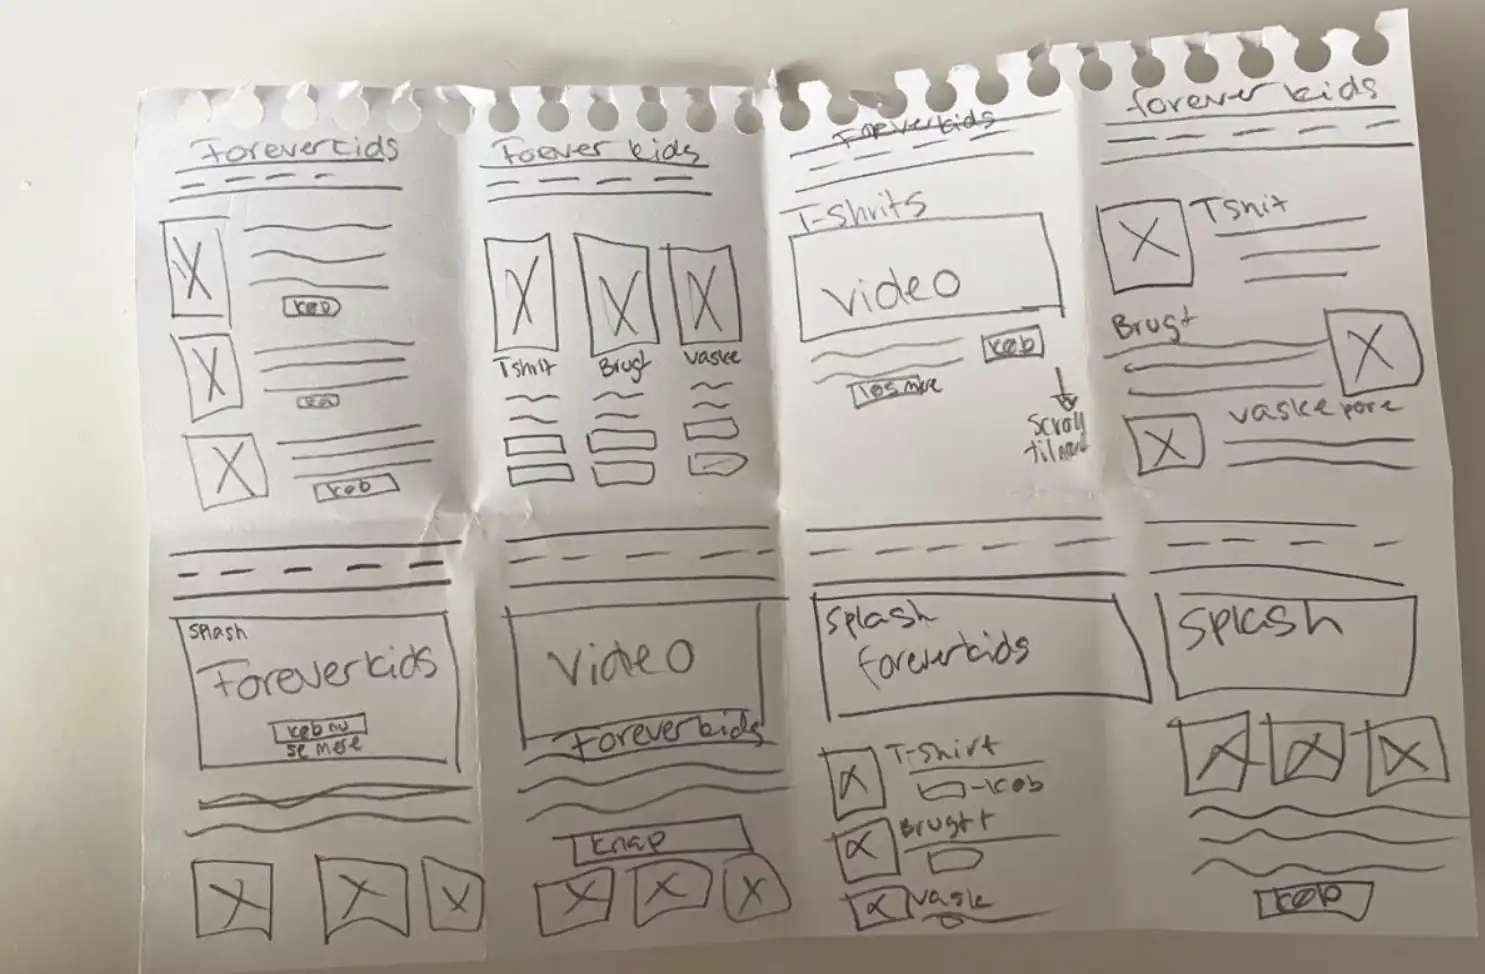 Foreverkids
køb
køb
Foever kids
Tshrit
Brugt
Vaske
Foreverkids
T-Shrits
Video
køb
læs mere
Scroll
forever kids
Tshit
Brugt
Vaske pore
Splash
Foreverkids
køb nu
se mere
Video
Foreverkids
knap
Splash
foreverkids
T-Shirt
-køb
Brugtt
Vask
Splash
køb